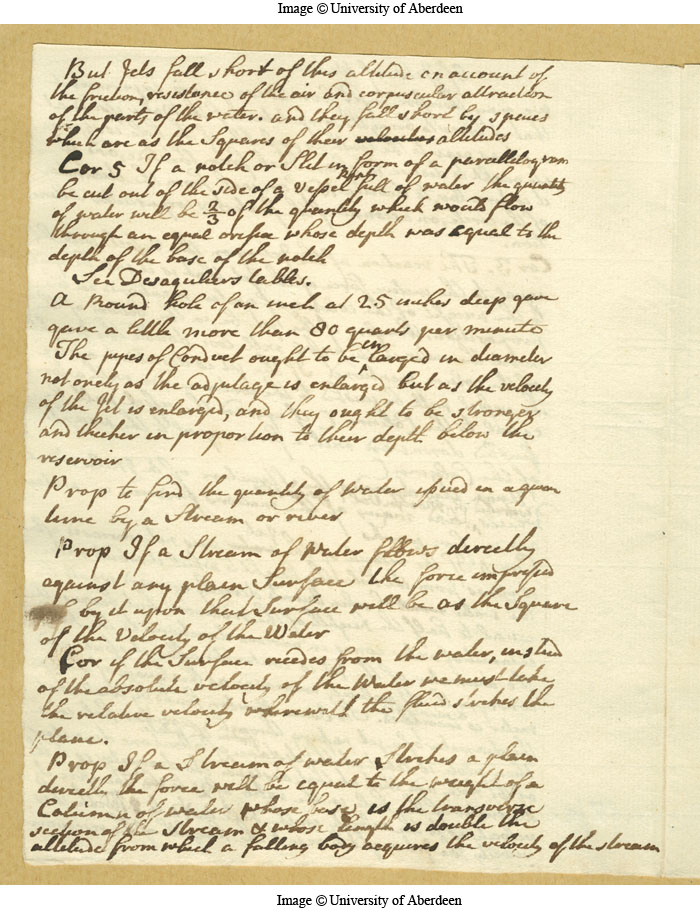 Image © University of Aberdeen
But Jets fall short of this altitude on account of
the friction, resistance of the air and corpuscular attraction
of the parts of the water. and they fall short by spaces
which are as the Squares of their velocities altitudes
Cor 5 If a notch or Slit in form of a parallelogram
be cut out of the side of a Vessel kept full of water the quantity
of water will be 2/3 of the quantity which would flow
through an equal orifice whose depth was equal to the
depth of the base of the notch
See Desaguliers tables.
A Round hole of an inch at 25 inches deep gave
gave a little more than 80 quarts per minute
The pipes of Conduct ought to be enlarged in diameter
not onely as the adjutage is enlarged but as the velocity
of the Jet is enlarged, and they ought to be stronger
and thicker in proportion to their depth below the
reservoir
Prop to find the quantity of Water issued in a given
time by a Stream or river
Prop If a Stream of Water flows directly
against any plain Surface the force impressed
by it upon that Surface will be as the Square
of the Velocity of the Water
Cor if the Surface recedes from the water, insted
of the absolute velocity of the Water we must take
the relative velocity wherewith the fluid strikes the
plane.
Prop If a Stream of water Strikes a plain
directly the force will be equal to the weight of a
Column of water whose base is the transverse
section of the Stream & whose length is double the
altitude from which a falling body acquires the velocity of the stream
Image © University of Aberdeen